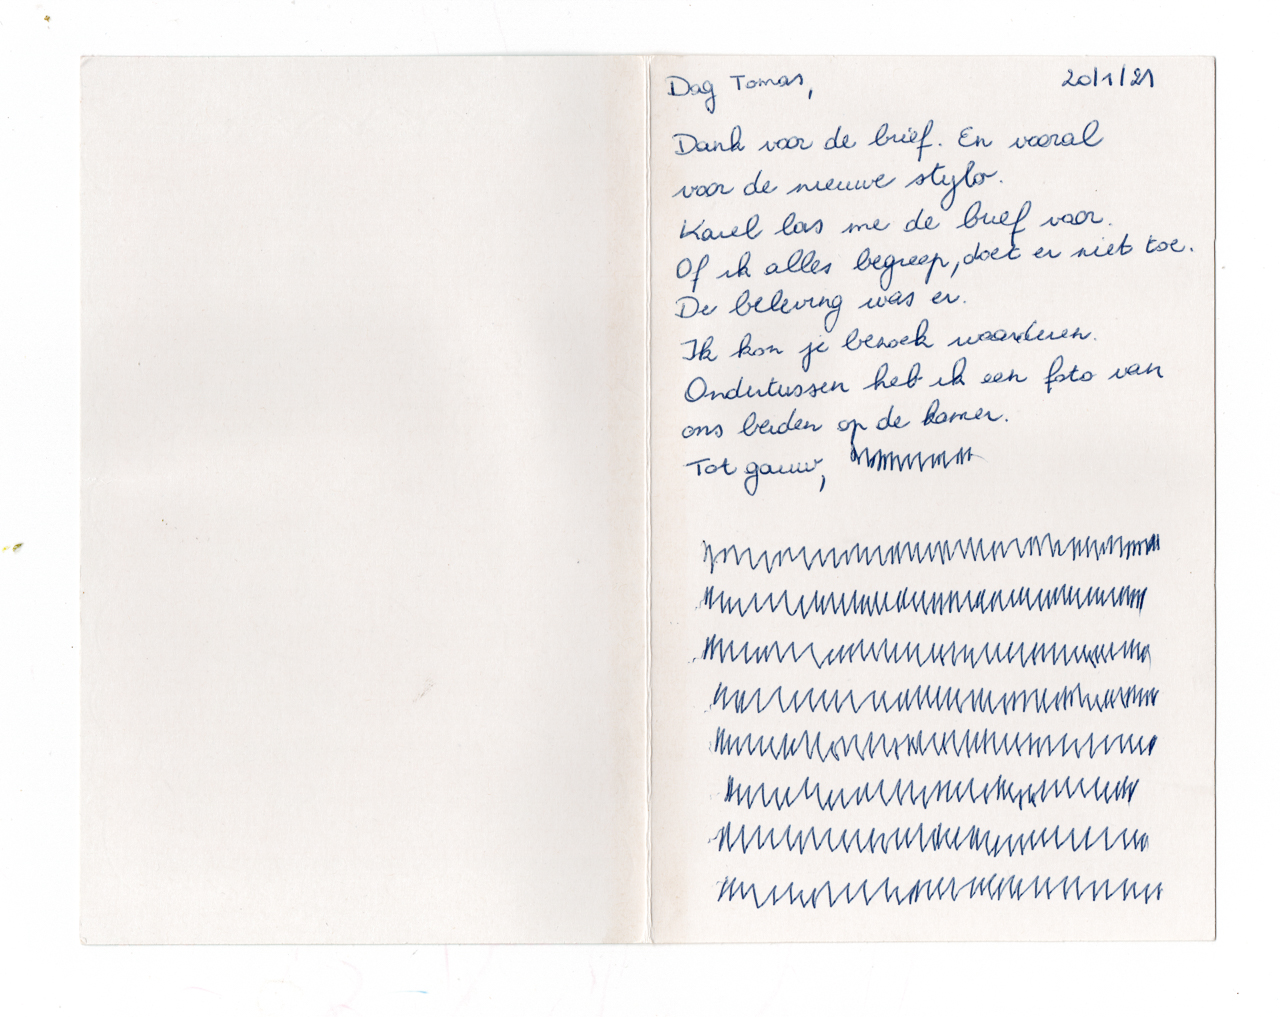 Dag Tomas, 20/1/21
Dank voor de brief. En vooral
voor de nieuwe stylo.
Karel las me de brief voor.
Of ik alles begreep, doet er niet toe.
De beleving was er.
Ik kon je bezoek waarderen.
Ondertussen heb ik een foto van
ons beiden op de kamer.
Tot gauw,